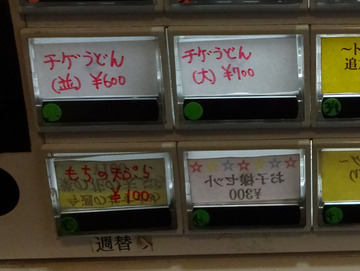 チゲうどん
(並) ¥600
チゲうどん
(大) ¥700
追
もちの天ぷら
¥100
お子様セット
¥300
週替